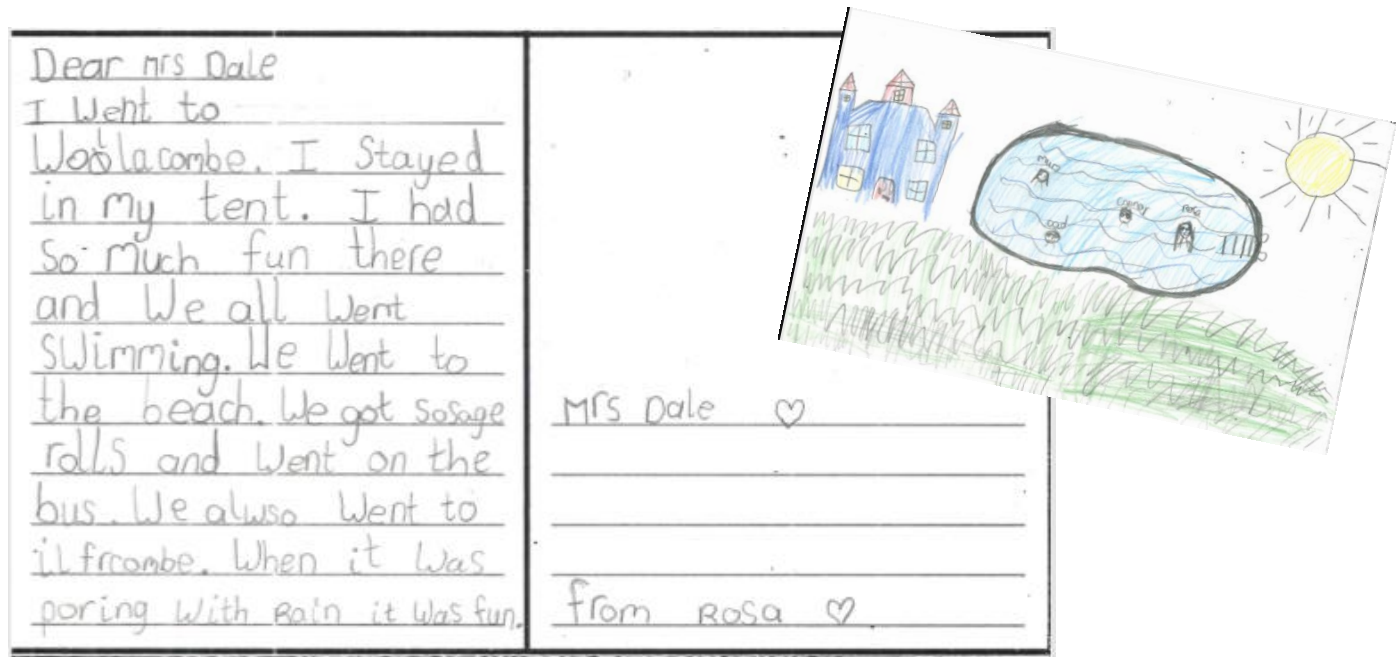 Dear Mrs Dale
I Went to
Woolacombe. I Stayed
in my tent. I had
So much fun there
and We all Went
SWimming. We Went to
the beach. We got sosage
rolls and Went on the
bus. We alwso Went to
ilfrcombe. When it Was
poring With Rain it Was fun.
Mrs Dale ♡
from Rosa ♡
mum
dad
Connor
Rosa